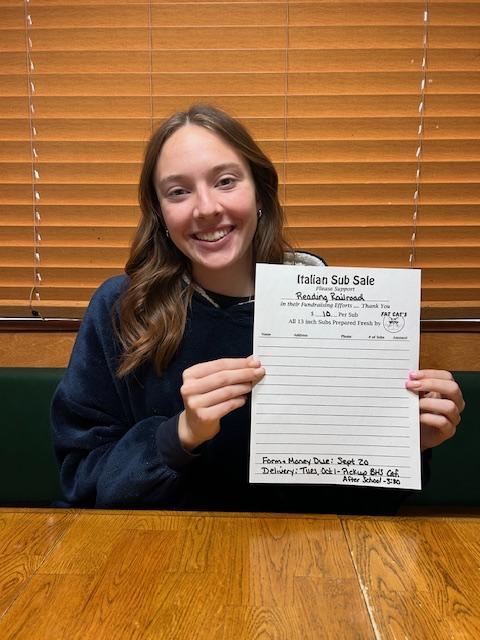 Italian Sub Sale
Please Support
Reading Railroad
in their Fundraising Efforts .... Thank You
$ 10 Per Sub
All 13 inch Subs Prepared Fresh by
FAT CAT'S
Name Address Phone # of Subs Amount
Form & Money Due: Sept 20
Delivery: Tues, Oct 1 - Pickup BHS Caf.
After School - 3:30